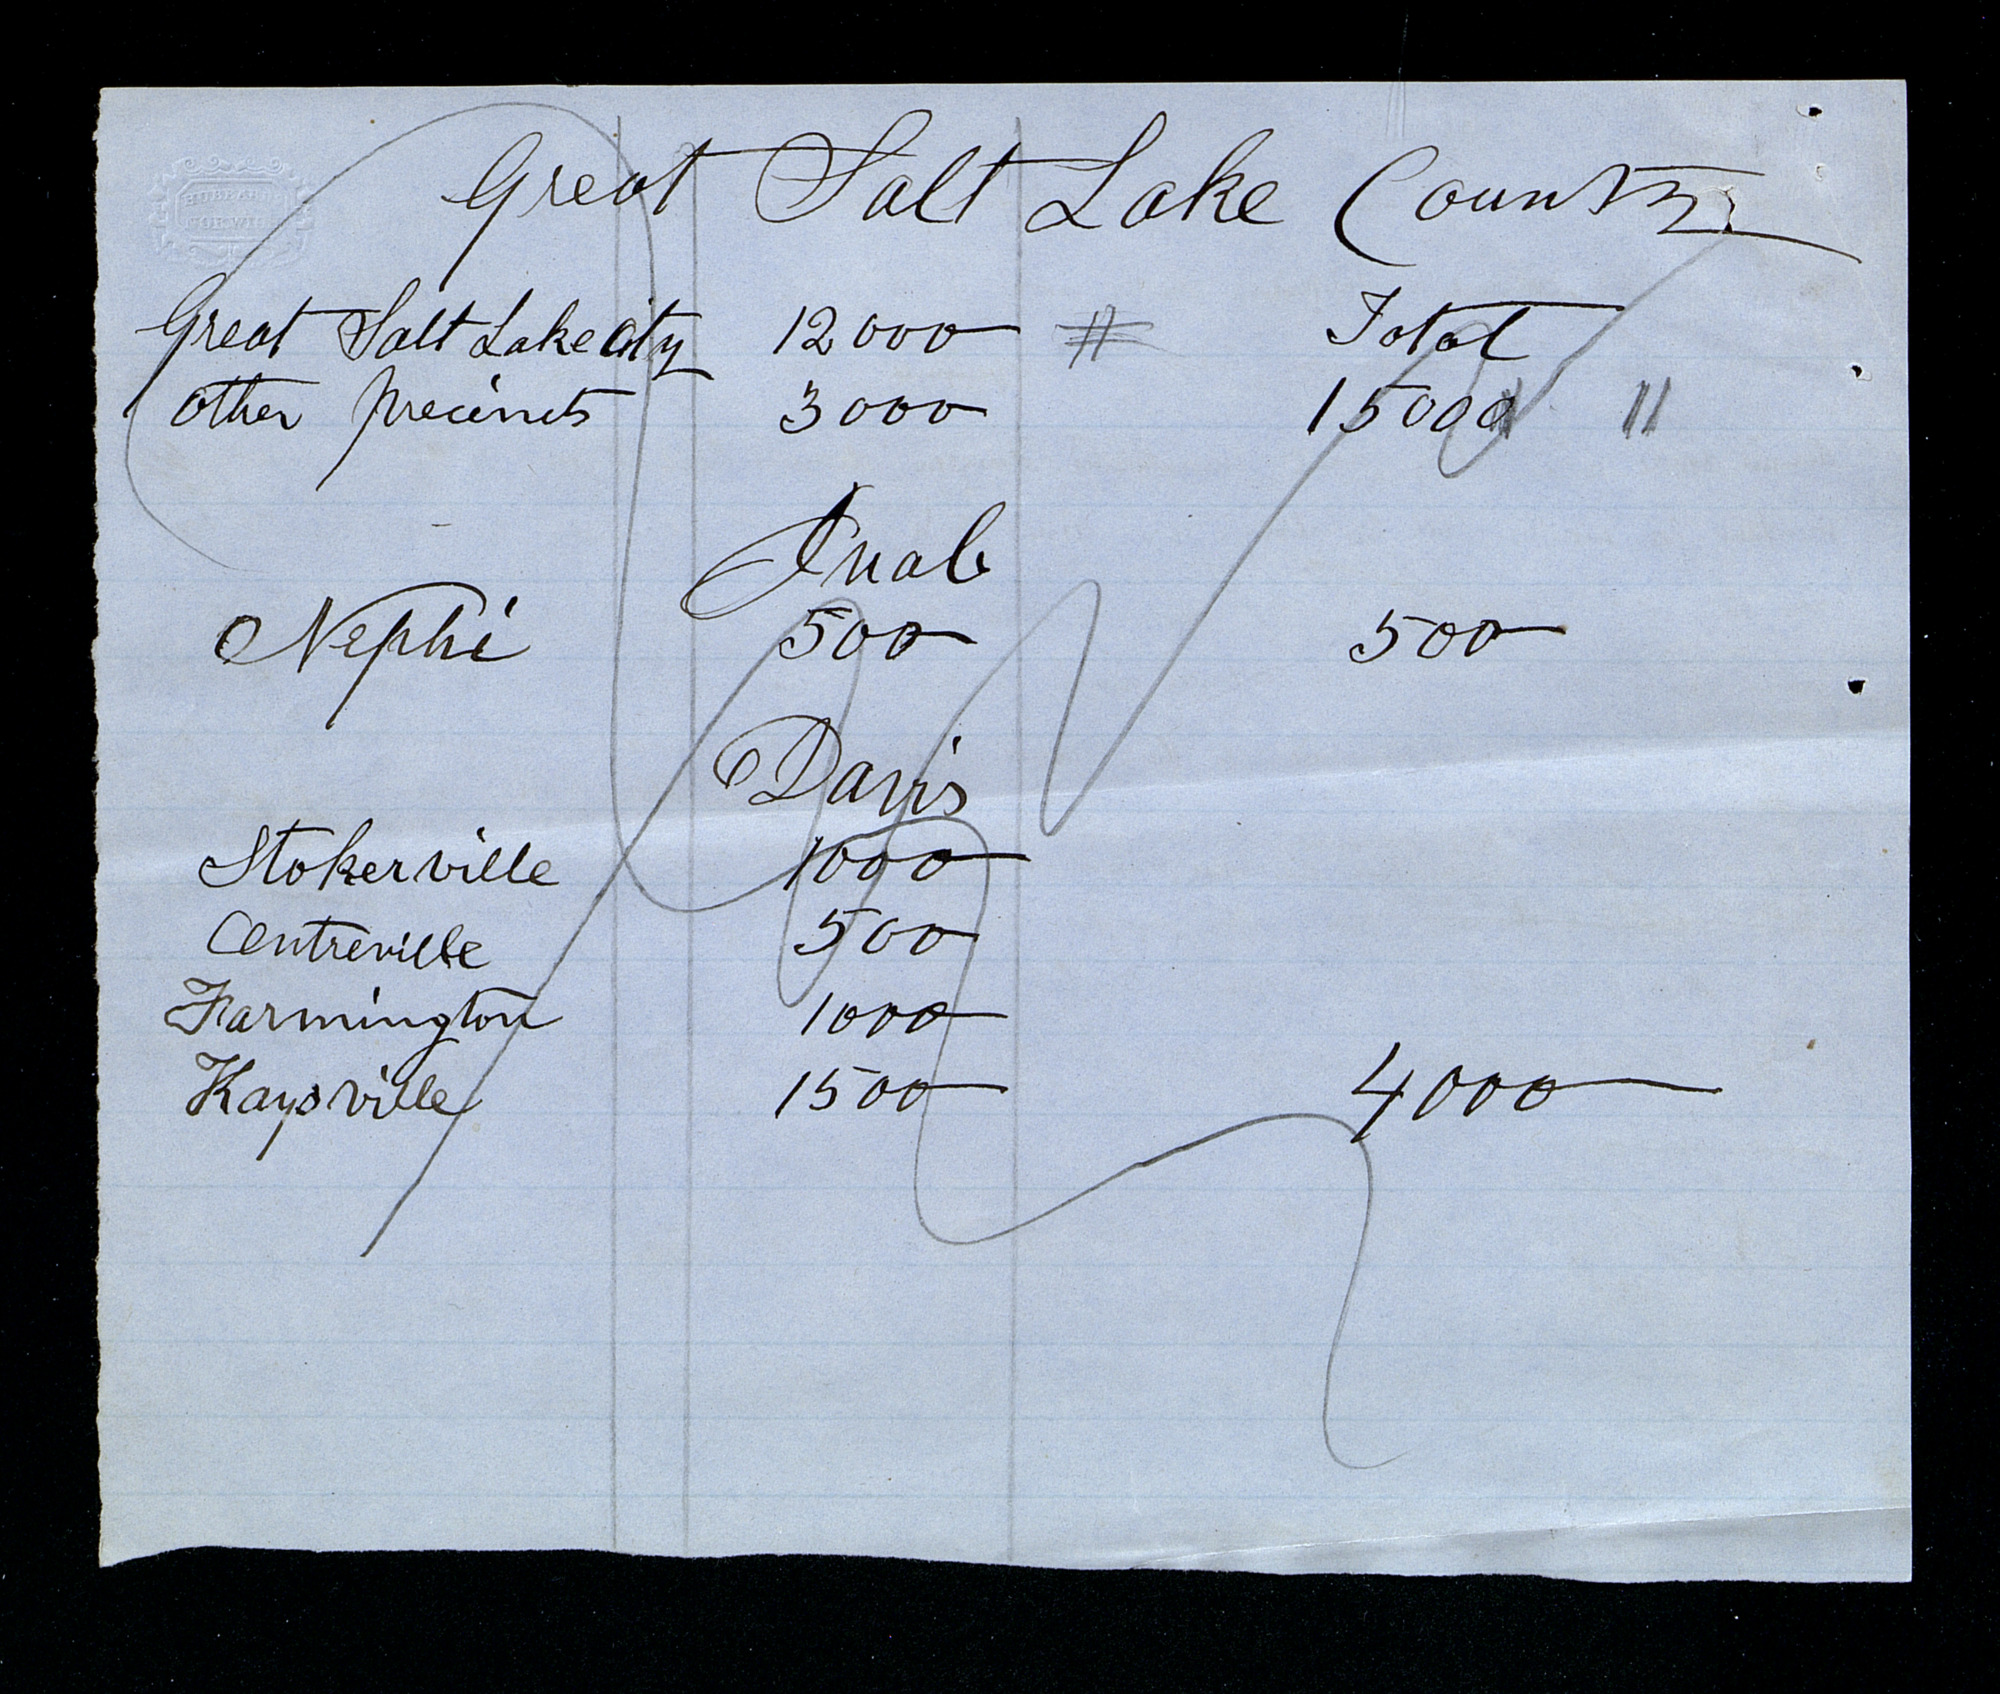 Great Salt Lake County
Great Salt Lake City 12000 Total
Other precincts 3000 15000 "
Juab
Nephi 500 500
Davis
Stokerville 1000
Centreville 500
Farmington 1000
Kaysville 1500 4000